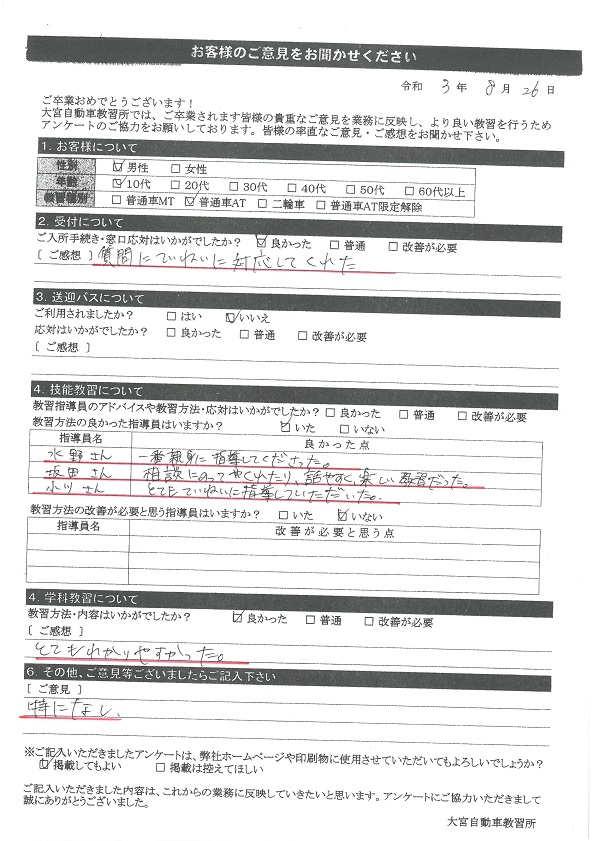 お客様のご意見をお聞かせください
令和 3 年 8 月 26 日
ご卒業おめでとうございます！
大宮自動車教習所では、ご卒業されます皆様の貴重なご意見を業務に反映し、より良い教習を行うため
アンケートのご協力をお願いしております。皆様の率直なご意見・ご感想をお聞かせ下さい。
1. お客様について
性別 ☑男性 □女性
年齢 ☑10代 □20代 □30代 □40代 □50代 □60代以上
教習種別 □普通車MT ☑普通車AT □二輪車 □普通車AT限定解除
2. 受付について
ご入所手続き・窓口応対はいかがでしたか？ ☑良かった □普通 □改善が必要
[ ご感想 ] 質問にていねいに対応してくれた
3. 送迎バスについて
ご利用されましたか？ □はい ☑いいえ
応対はいかがでしたか？ □良かった □普通 □改善が必要
[ ご感想 ]
4. 技能教習について
教習指導員のアドバイスや教習方法・応対はいかがでしたか？ □良かった □普通 □改善が必要
教習方法の良かった指導員はいますか？ ☑いた □いない
指導員名 良かった点
水野さん 一番親身に指導してくださった。
坂田さん 相談にのってくれたり、話やすく、楽しい教習だった。
小川さん とてもていねいに指導していただいた。
教習方法の改善が必要と思う指導員はいますか？ □いた ☑いない
指導員名 改善が必要と思う点
4. 学科教習について
教習方法・内容はいかがでしたか？ ☑良かった □普通 □改善が必要
[ ご感想 ]
とてもわかりやすかった。
6. その他、ご意見等ございましたらご記入下さい
[ ご意見 ]
特になし、
※ご記入いただきましたアンケートは、弊社ホームページや印刷物に使用させていただいてもよろしいでしょうか？
☑掲載してもよい □掲載は控えてほしい
ご記入いただきました内容は、これからの業務に反映していきたいと思います。アンケートにご協力いただきまして
誠にありがとうございました。
大宮自動車教習所